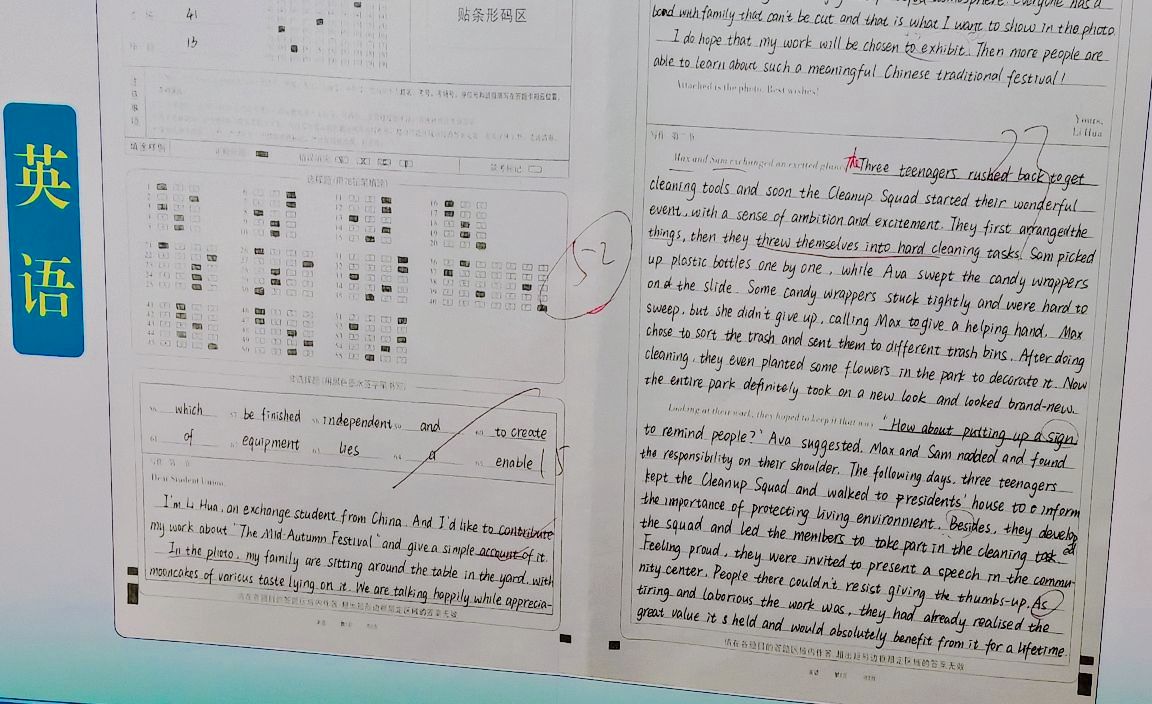 英语
41
15
贴条形码区
选择题(用2B铅笔填涂)
5-2
非选择题(用黑色墨水签字笔书写)
56. which 57. be finished 58. independent 59. and 60. to create
61. of 62. equipment 63. lies 64. a 65. enable
15
写作 第一节
Dear Student Union,
I'm Li Hua, an exchange student from China. And I'd like to contribute
my work about "The Mid-Autumn Festival" and give a simple account of it.
In the photo, my family are sitting around the table in the yard, with
mooncakes of various taste lying on it. We are talking happily while apprecia-
请在各题目的答题区域内作答,超出边框限定区域的答案无效
Everyone has a
bond with family that can't be cut and that is what I want to show in the photo
I do hope that my work will be chosen to exhibit. Then more people are
able to learn about such a meaningful Chinese traditional festival!
Attached is the photo. Best wishes!
Yours,
Li Hua
写作 第二节
23
Max and Sam exchanged an excited glance. The Three teenagers rushed back to get
cleaning tools and soon the Cleanup Squad started their wonderful
event, with a sense of ambition and excitement. They first arranged the
things, then they threw themselves into hard cleaning tasks. Sam picked
up plastic bottles one by one, while Ava swept the candy wrappers
on the slide. Some candy wrappers stuck tightly and were hard to
sweep, but she didn't give up, calling Max to give a helping hand. Max
chose to sort the trash and sent them to different trash bins. After doing
cleaning, they even planted some flowers in the park to decorate it. Now
the entire park definitely took on a new look and looked brand-new.
Looking at their work, they hoped to keep it that way. "How about putting up a sign
to remind people?" Ava suggested. Max and Sam nodded and found
the responsibility on their shoulder. The following days, three teenagers
kept the Cleanup Squad and walked to presidents' house to inform
the importance of protecting living environment. Besides, they develop
the squad and led the members to take part in the cleaning task.
Feeling proud, they were invited to present a speech in the commu-
nity center. People there couldn't resist giving the thumbs-up. As
tiring and laborious the work was, they had already realised the
great value it s held and would absolutely benefit from it for a lifetime.
请在各题目的答题区域内作答,超出边框限定区域的答案无效